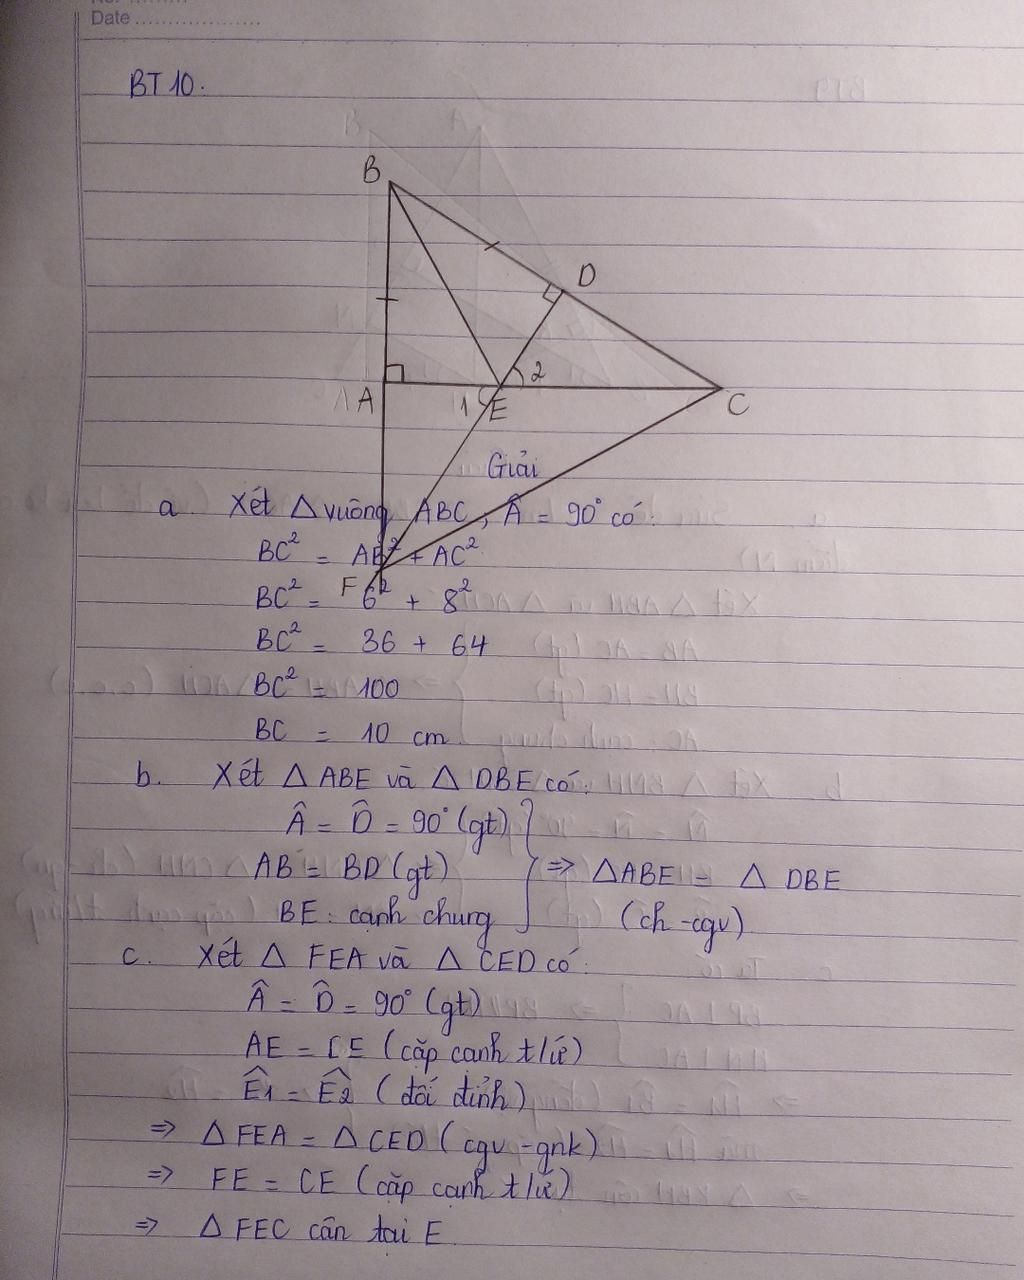 No: .........
Date ...................
BT 10.
B
D
2
A
1
E
C
Giải
a. Xét △ vuông ABC, Â = 90° có:
BC² = AB² + AC²
F
BC² = 6² + 8²
BC² = 36 + 64
BC² = 100
BC = 10 cm.
b. Xét △ ABE và △ DBE có:
Â = D̂ = 90° (gt)
AB = BD (gt) => △ABE = △ DBE
BE: cạnh chung (ch-cgv)
c. Xét △ FEA và △ CED có:
Â = D̂ = 90° (gt)
AE = DE (cặp cạnh t/ứ)
Ê1 = Ê2 (đối đỉnh)
=> △ FEA = △ CED (cgv-gnk)
=> FE = CE (cặp cạnh t/ứ)
=> △ FEC cân tại E